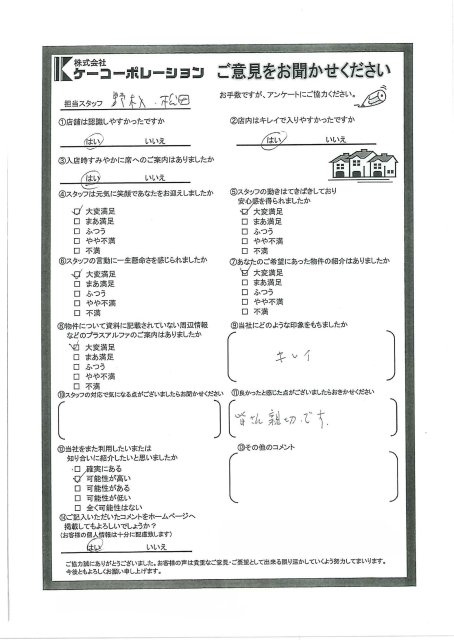 株式会社
ケーコーポレーション ご意見をお聞かせください
お手数ですが、アンケートにご協力ください。
担当スタッフ 野村・松田
①店舗は認識しやすかったですか
はい いいえ
②店内はキレイで入りやすかったですか
はい いいえ
③入店時すみやかに席へのご案内はありましたか
はい いいえ
④スタッフは元気に笑顔であなたをお迎えしましたか
大変満足
まあ満足
ふつう
やや不満
不満
⑤スタッフの動きはてきぱきしており
安心感を得られましたか
大変満足
まあ満足
ふつう
やや不満
不満
⑥スタッフの言動に一生懸命さを感じられましたか
大変満足
まあ満足
ふつう
やや不満
不満
⑦あなたのご希望にあった物件の紹介はありましたか
大変満足
まあ満足
ふつう
やや不満
不満
⑧物件について資料に記載されていない周辺情報
などのプラスアルファのご案内はありましたか
大変満足
まあ満足
ふつう
やや不満
不満
⑨当社にどのような印象をもちましたか
キレイ
⑩スタッフの対応で気になる点がございましたらお聞かせください
⑪良かったと感じた点がございましたらおきかせください
皆さん親切です。
⑫当社をまた利用したいまたは
知り合いに紹介したいと思いましたか
確実にある
可能性が高い
可能性がある
可能性が低い
全く可能性はない
⑬その他のコメント
⑭ご記入いただいたコメントをホームページへ
掲載してもよろしいでしょうか?
(お客様の個人情報は十分に配慮致します)
はい いいえ
ご協力誠にありがとうございました。お客様の声は貴重なご意見・ご要望として出来る限り活かしていくよう努力してまいります。
今後ともよろしくお願い申し上げます。